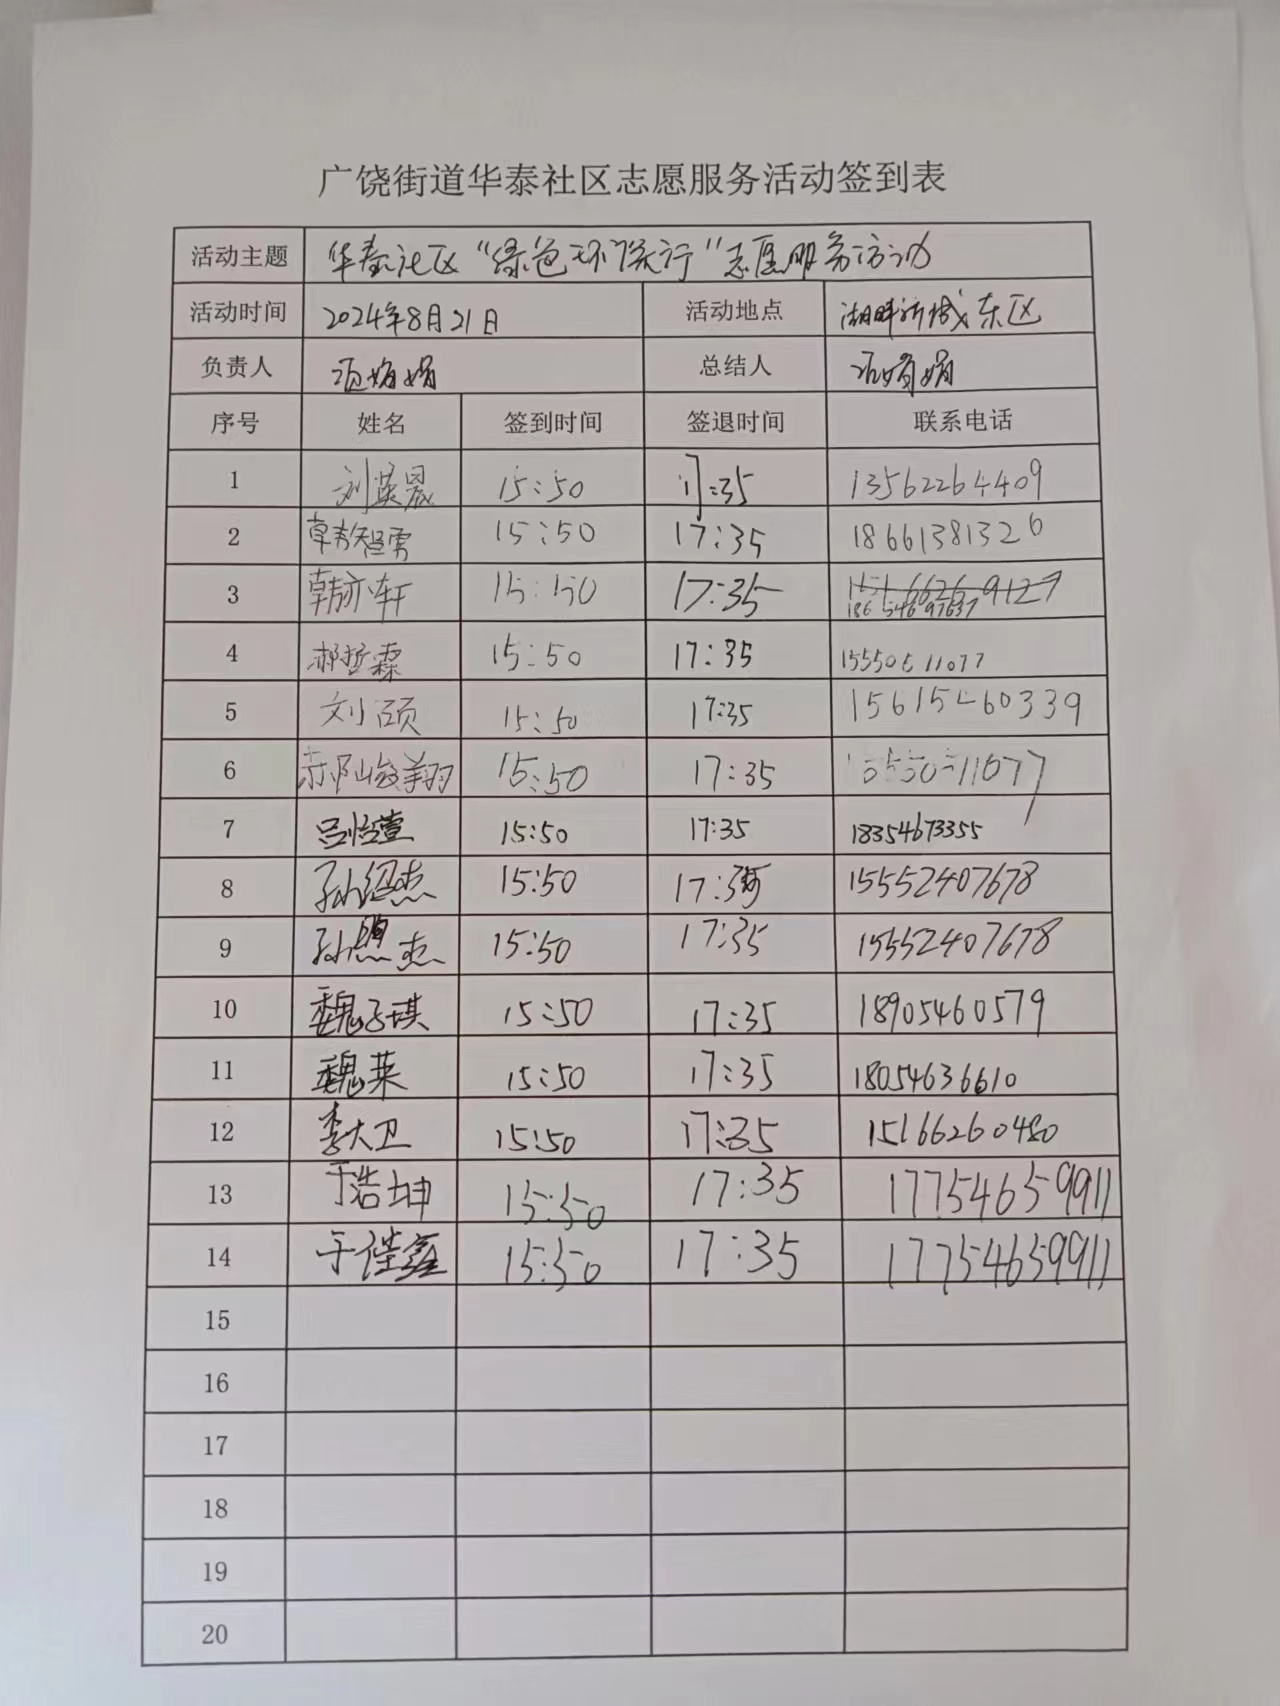 广饶街道华泰社区志愿服务活动签到表
活动主题 华泰社区“绿色环保行”志愿服务活动
活动时间 2024年8月21日 活动地点 湖畔新城东区
负责人 娟娟 总结人 娟娟
序号 姓名 签到时间 签退时间 联系电话
1 刘英晟 15:50 17:35 13562264409
2 韩智勇 15:50 17:35 18661381326
3 韩亦轩 15:50 17:35 18654697637
4 郝哲霖 15:50 17:35
5 刘颐 15:50 17:35 15615460339
6 翔 15:50 17:35
7 吕怡萱 15:50 17:35 18354673355
8 孙绍杰 15:50 17:35 15552407678
9 孙思杰 15:50 17:35 15552407678
10 魏子琪 15:50 17:35 18905460579
11 魏莱 15:50 17:35 18054636610
12 李大卫 15:50 17:35 15166260480
13 于浩坤 15:50 17:35 17754659911
14 于佳鑫 15:50 17:35 17754659911
15
16
17
18
19
20